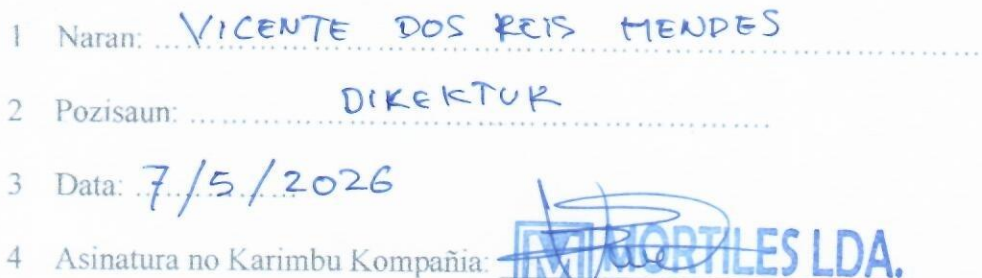 1 Naran: VICENTE DOS REIS MENDES
2 Pozisaun: DIREKTUR
3 Data: 7/5/2026
4 Asinatura no Karimbu Kompañia: MORTILES LDA.